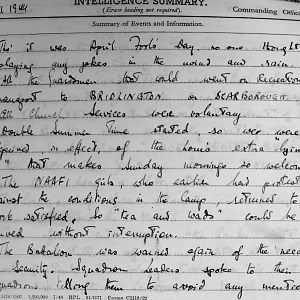 INTELLIGENCE SUMMARY.
(Erase heading not required).
Commanding Offic
Summary of Events and Information.
1944
it was April Fool's Day, no one thought
playing any jokes in the wind and rain.
All the Guardsmen that could went on Recreation
transport to BRIDLINGTON or SCARBOROUGH.
All Church Services were voluntary.
Double Summer Time started, so we were
in effect, of the hours extra lying
that makes Sunday mornings so welcome
The NAAFI girls, who earlier had protest
against the conditions in the Camp, returned to
work satisfied, so "tea and wads" could be
without interruption.
The Battalion was warned again of the need
Security. Squadron leaders spoke to their
squadrons telling them to avoid any mention
7/40 BPL Forms C2118/22